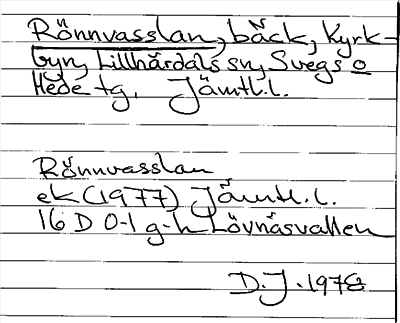 Rönnvasslan, bäck, Kyrk-
byn, Lillhärdals sn, Svegs o
Hede tg, Jämtl.l.
Rönnvasslan
ek (1977) Jämtl.l.
16 D 0-1 g-h Lövnäsvallen
D.J. 1978